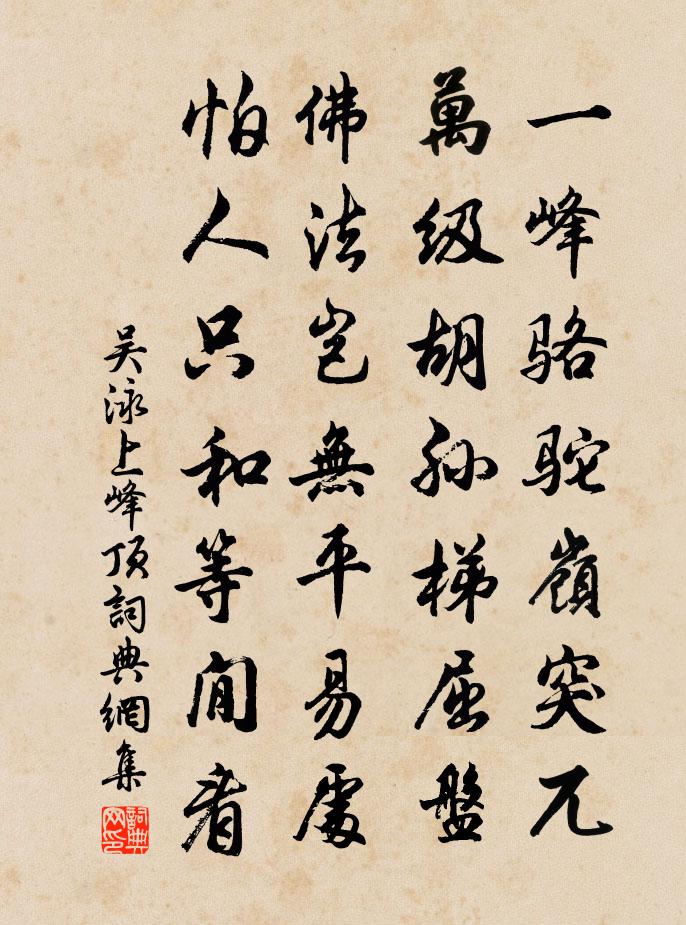 一峰骆驼嶺突兀
萬级胡孙梯屈盤
佛法岂無平易處
怕人只和等闲看
吴泳上峰顶詞典網集
詞典网印